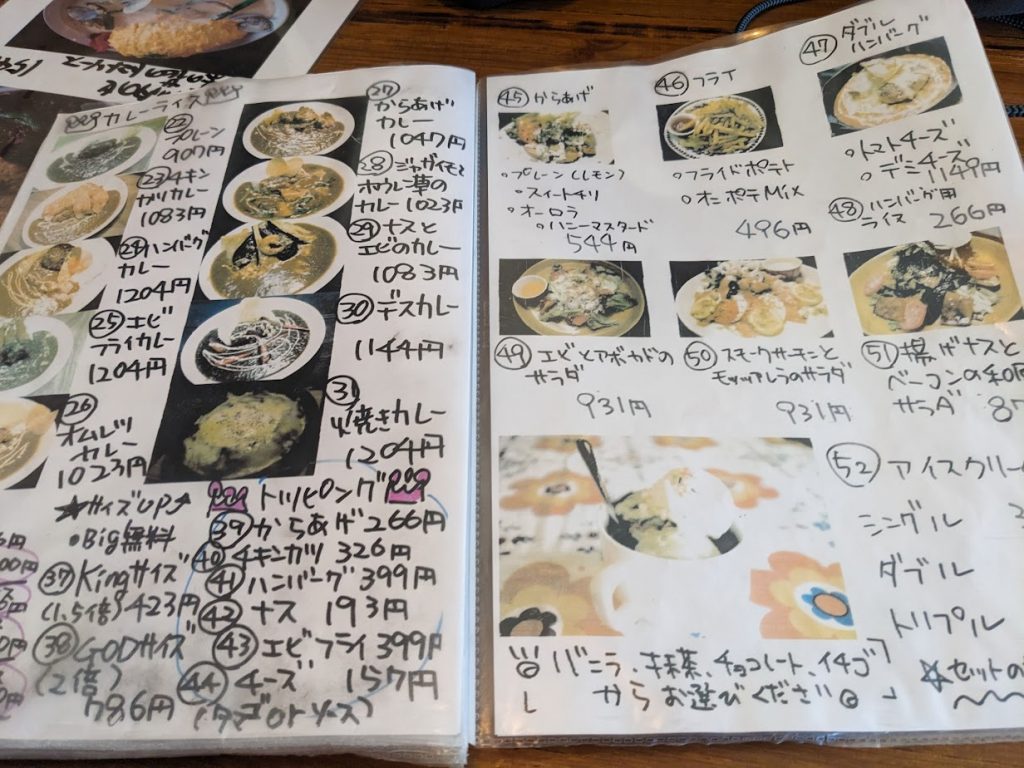 カレーライス
㉒
プレーン
907円
㉓チキン
カツカレー
1083円
㉔ハンバーグ
カレー
1204円
㉕エビ
フライカレー
1204円
㉖
オムレツ
カレー
1023円
㉗
からあげ
カレー
1047円
㉘ジャガイモと
ホウレン草の
カレー1023円
㉙ナスと
エビのカレー
1083円
㉚デスカレー
1144円
㉛
焼きカレー
1204円
★サイズUP↗
•Big無料
㊲Kingサイズ
(1.5倍)423円
㊳GODサイズ
(2倍)
786円
トッピング
㊴からあげ266円
㊵チキンカツ 326円
㊶ハンバーグ399円
㊷ナス 193円
㊸エビフライ399円
㊹チーズ 157円
(タマゴorソース)
㊺からあげ
。プレーン(レモン)
。スイートチリ
。オーロラ
。ハニーマスタード
544円
㊻フライ
。フライドポテト
。オニポテMix
496円
㊼ダブル
ハンバーグ
。トマトチーズ
。デミチーズ
1149円
㊽ハンバーグ用
ライス 266円
㊾エビとアボカドの
サラダ
931円
㊿スモークサーモンと
モッツアレラのサラダ
931円
51 揚げナスと
ベーコンの和風
サラダ 87
52 アイスクリー
シングル
ダブル
トリプル
バニラ、抹茶、チョコレート、イチゴ
からお選びください
☆セットの